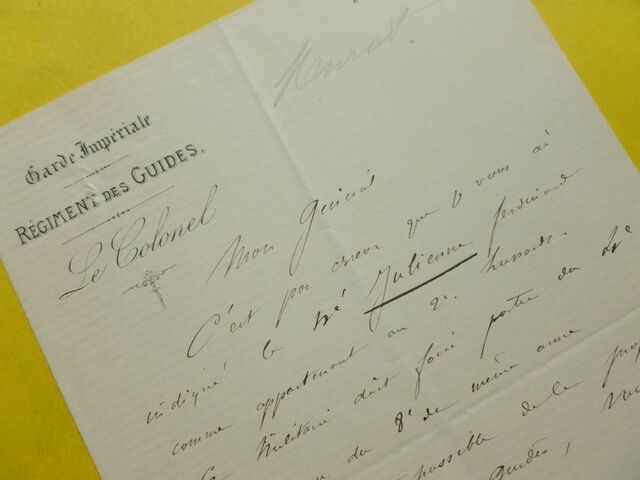 Murat
Garde Impériale
RÉGIMENT DES GUIDES.
Le Colonel
Mon Général
C'est par erreur que je vous ai
indiqué le né Julienne ferdinand
comme appartenant au 2e hussards.
Militaire doit faire partie du
du 8e de même arme
possible de la
guides,